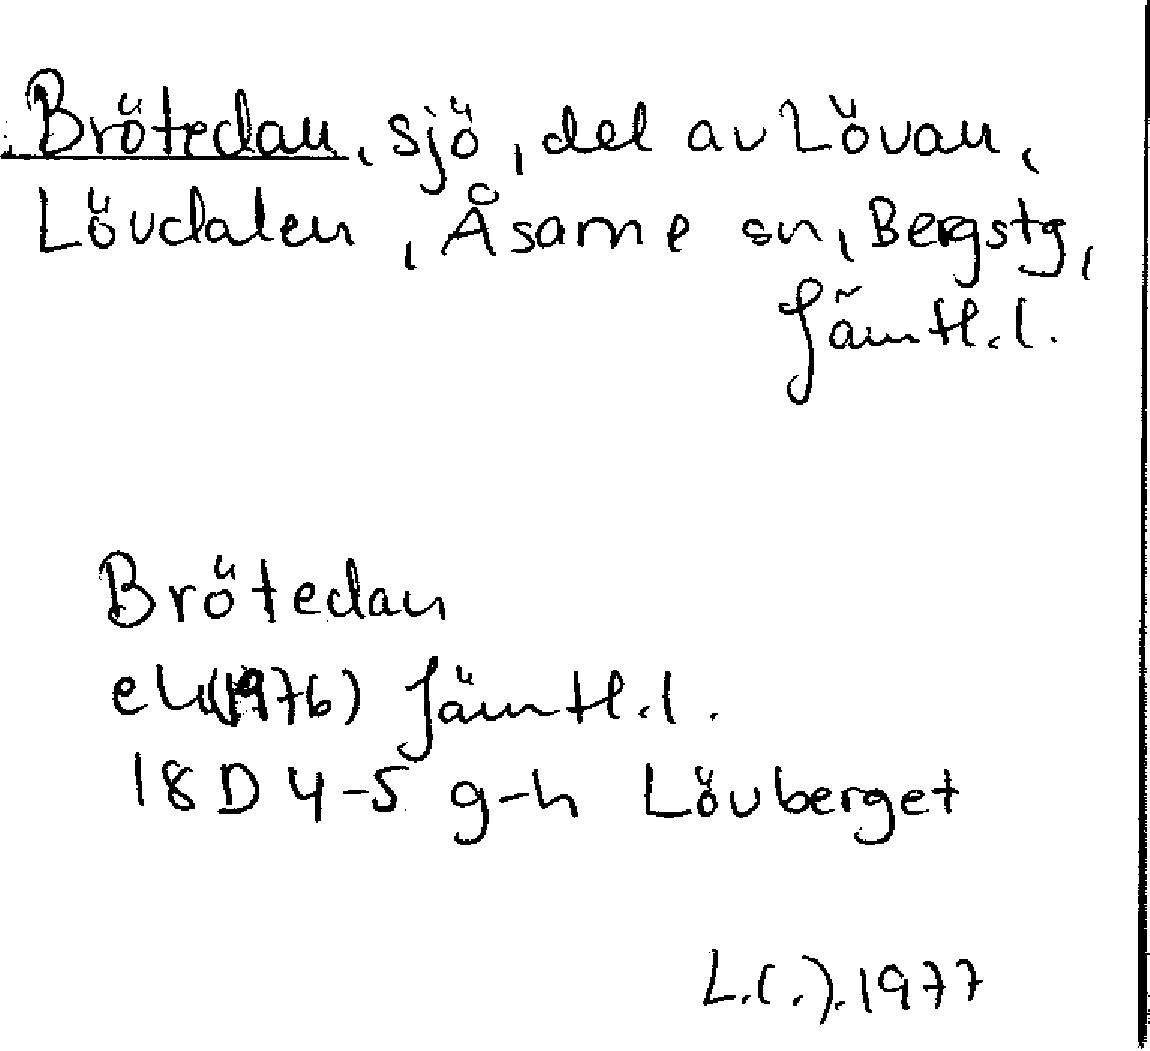 Brötedan, sjö, del av Lövan,
Lövdalen, Åsarne sn, Bergstg,
Jämtl.l.
Brötedan
ek (1976) Jämtl.l.
18D 4-5 g-h Lövberget
L.(.).1977